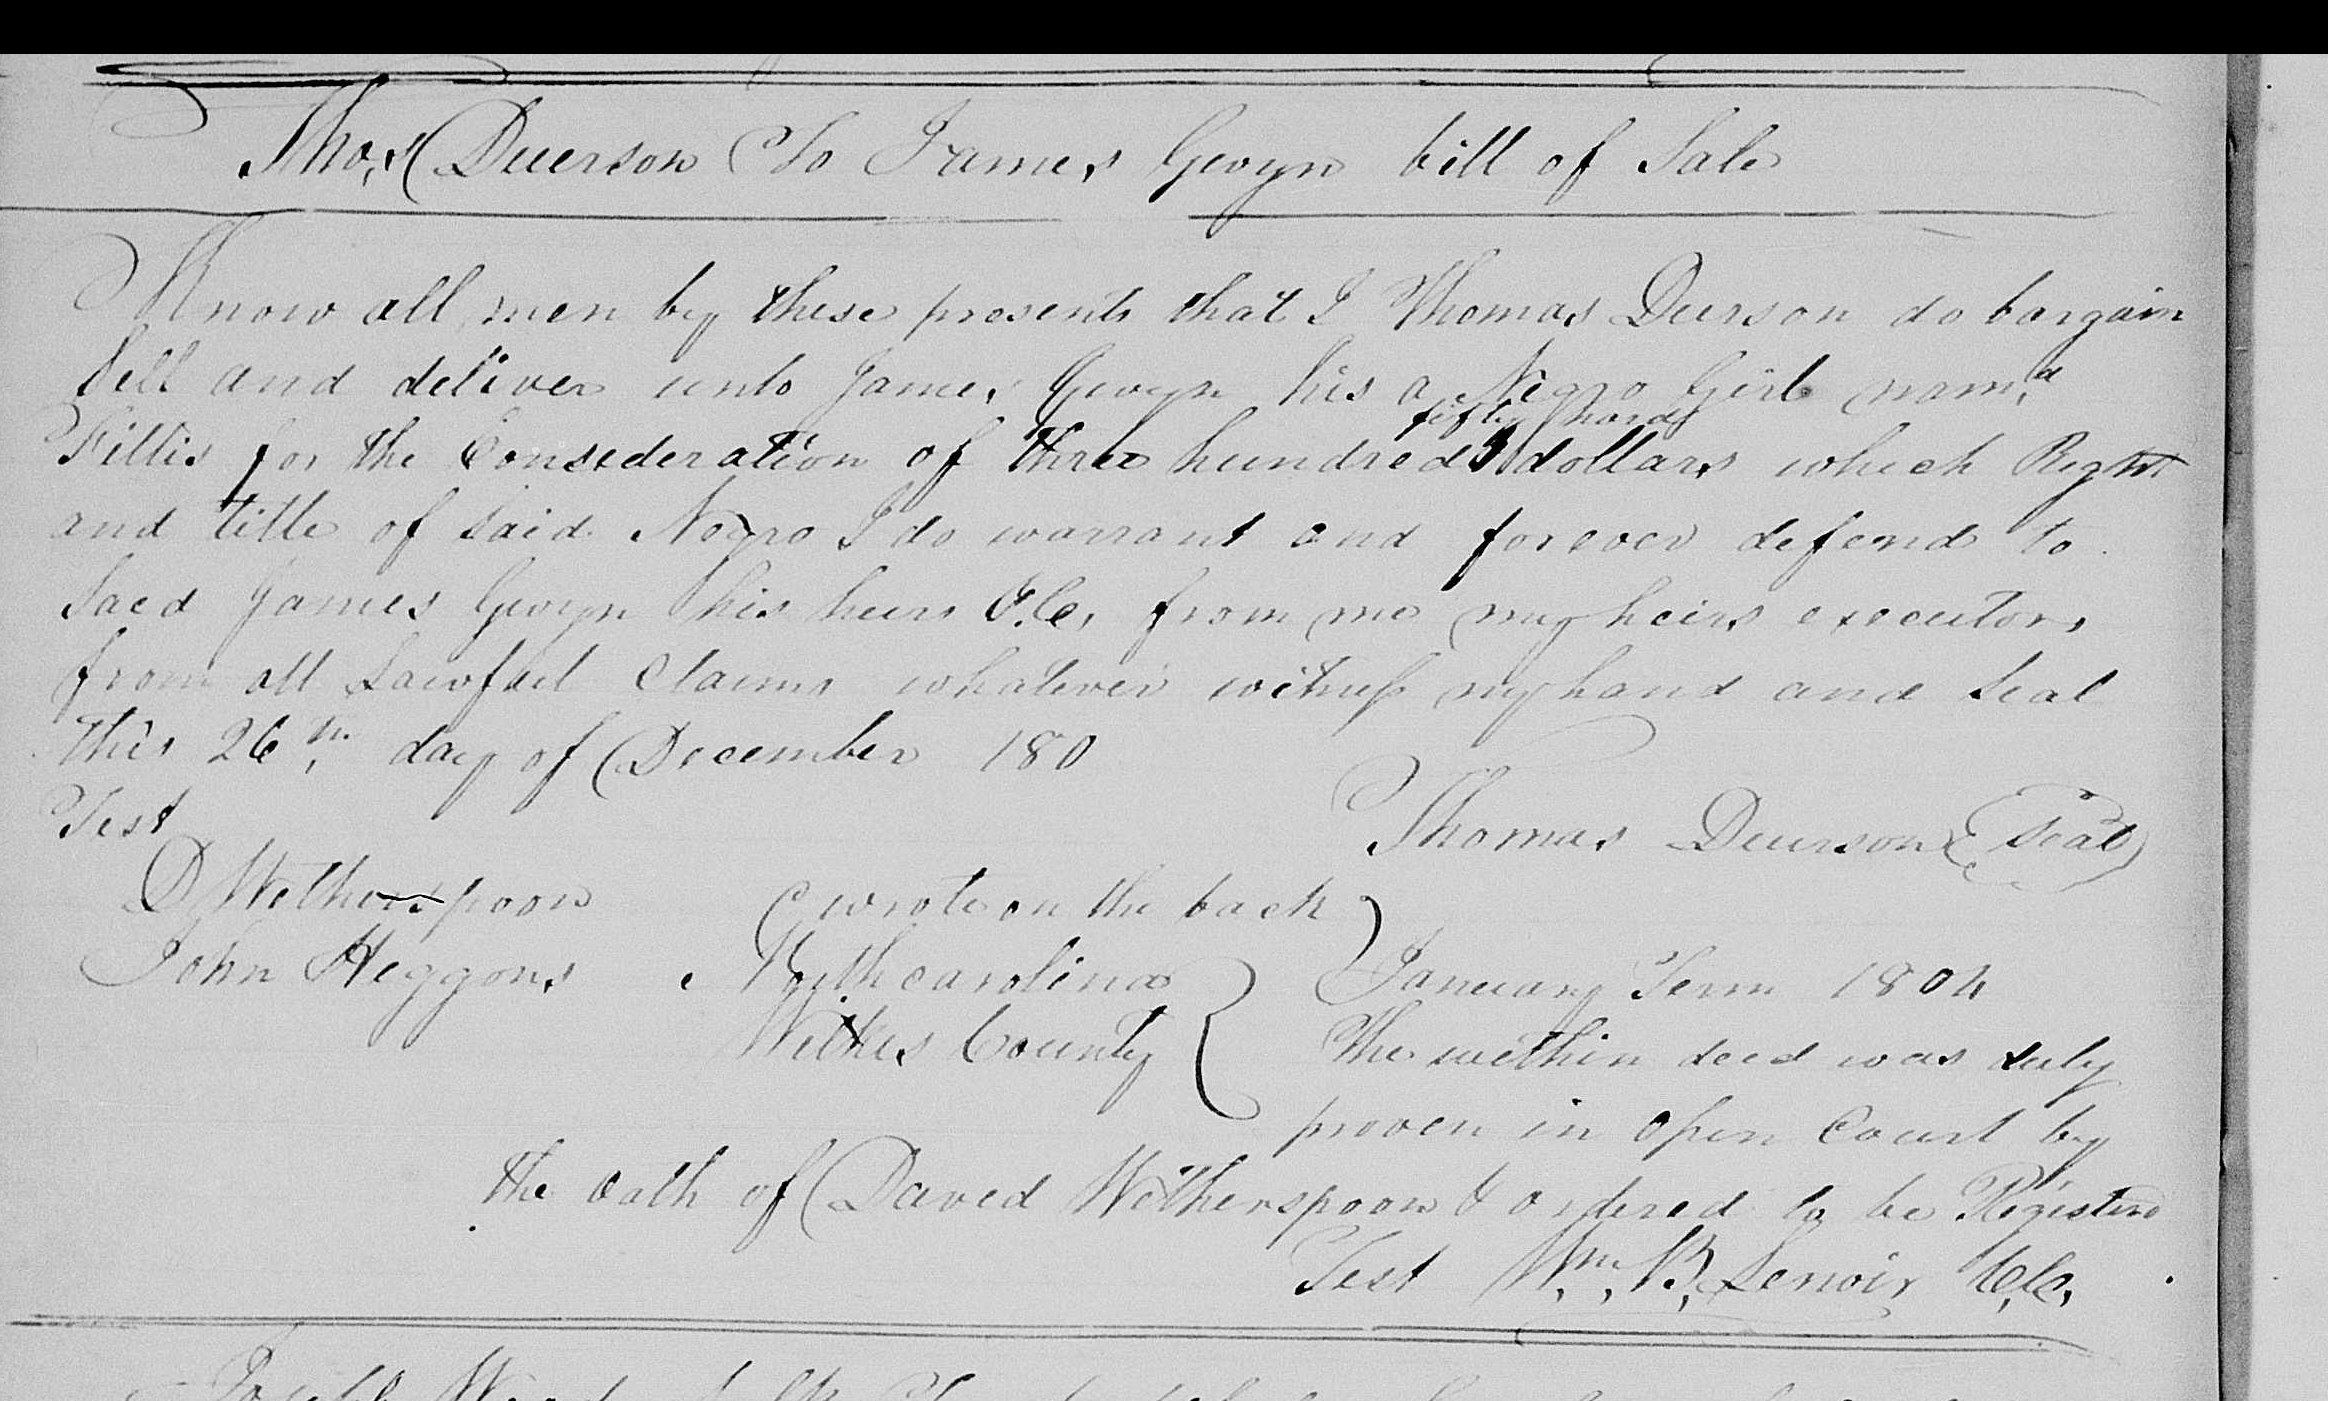 Thos Duerson To James Gwyn bill of Sale
Know all men by these presents that I Thomas Duerson do bargain
Sell and deliver unto James Gwyn his a Negro Girl namd
fifty hard
Fillis for the Consederation of three hundred dollars which Right
and title of said Negro I do warrant and forever defend to
Saed James Gwyn his heirs &C, from me my heirs executors
from all Lawfull Claims whatever witness my hand and Seal
this 26th, day of December 180
Test
Thomas Duerson Seal
D Wetherspoon
wrote on the back
John Heggons
Northcarolina
January Term 1804
Wilkes County
The within deed was duly
proven in Open Court by
the oath of David Wetherspoon & ordered to be Registered
Test Wm, B, Lenoir C,C,
Joseph